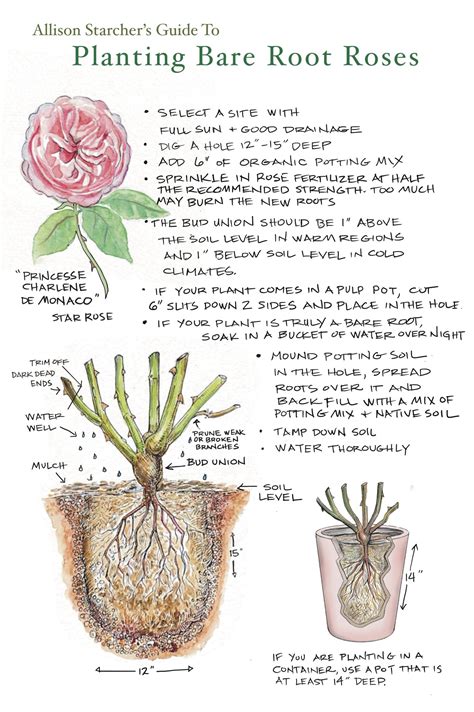 Allison Starcher's Guide To
Planting Bare Root Roses
• SELECT A SITE WITH
FULL SUN + GOOD DRAINAGE
• DIG A HOLE 12"-15" DEEP
• ADD 6" OF ORGANIC POTTING MIX
• SPRINKLE IN ROSE FERTILIZER AT HALF
THE RECOMMENDED STRENGTH. TOO MUCH
MAY BURN THE NEW ROOTS
• THE BUD UNION SHOULD BE 1" ABOVE
THE SOIL LEVEL IN WARM REGIONS
AND 1" BELOW SOIL LEVEL IN COLD
CLIMATES.
"PRINCESSE
CHARLENE
DE MONACO"
STAR ROSE
• IF YOUR PLANT COMES IN A PULP POT, CUT
6" SLITS DOWN 2 SIDES AND PLACE IN THE HOLE.
• IF YOUR PLANT IS TRULY A BARE ROOT,
SOAK IN A BUCKET OF WATER OVERNIGHT
• MOUND POTTING SOIL
IN THE HOLE, SPREAD
ROOTS OVER IT AND
BACKFILL WITH A MIX OF
POTTING MIX + NATIVE SOIL
• TAMP DOWN SOIL
• WATER THOROUGHLY
TRIM OFF
DARK DEAD
ENDS
WATER
WELL
PRUNE WEAK
OR BROKEN
BRANCHES
BUD UNION
MULCH
SOIL
LEVEL
15"
12"
14"
IF YOU ARE PLANTING IN A
CONTAINER, USE A POT THAT IS
AT LEAST 14" DEEP.